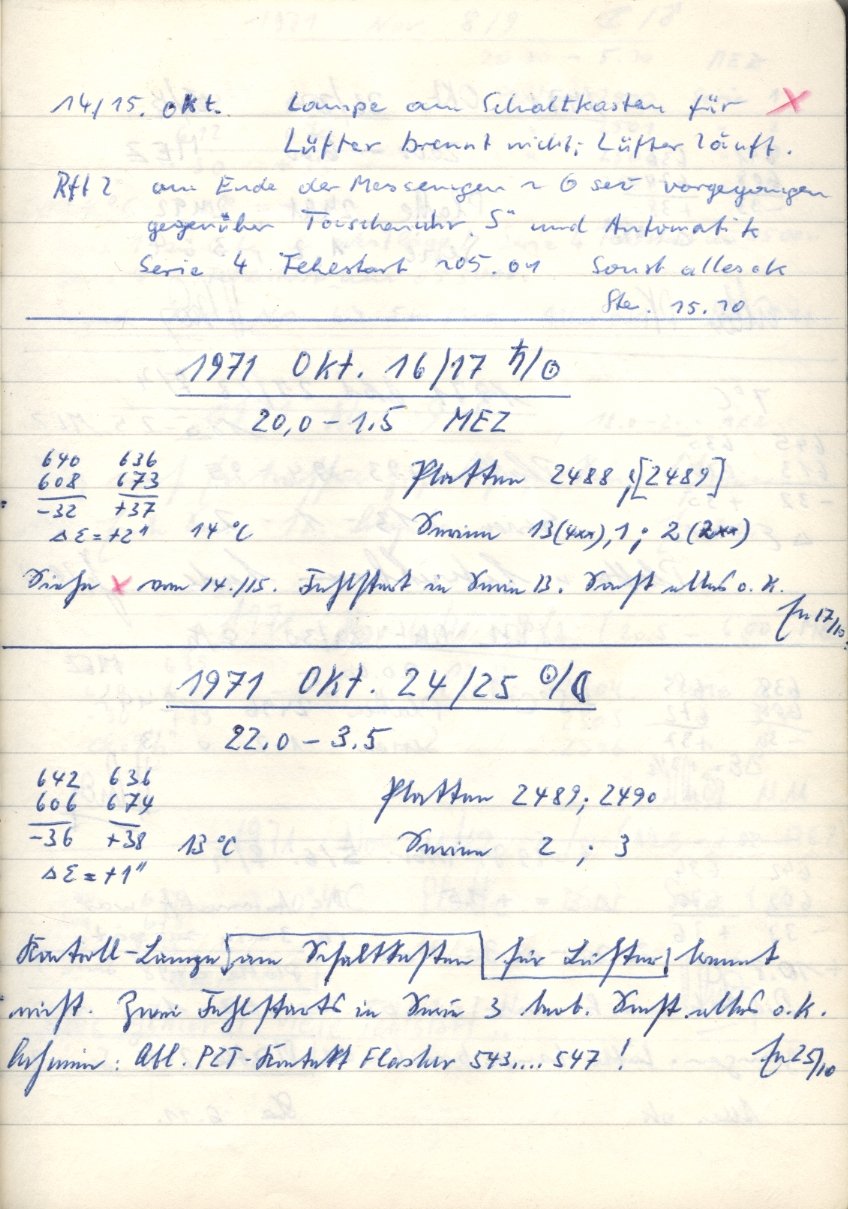 14/15. Okt. Lampe am Schaltkasten für X
Lüfter brennt nicht; Lüfter läuft.
am Ende der Messungen ~ 6 sec vorgegangen
gegenüber Taschenuhr "S" und Automatik
Serie 4 Fehlstart ~05.01 Sonst alles ok
Ste. 15.10
1971 Okt. 16/17 ♄/☉
20,0 - 1.5 MEZ
640 636
608 673
-32 +37
Platten 2488; [2489]
ΔE = +2" 14 °C Serien 13(4xx), 1; 2(2xx)
Siehe x vom 14./15. Fehlstart in Serie 13. Sonst alles o.k.
17/10.
1971 Okt. 24/25 ☉/☾
22.0 - 3.5
642 636
606 674
-36 +38
Platten 2489; 2490
13 °C Serien 2 ; 3
ΔE = +1"
Kontroll-Lampe am Schaltkasten für Lüfter brennt
nicht. Zwei Fehlstarts in Serie 3 beob. Sonst alles o.k.
Abl. PZT-Kontakt Flasher 543....547 !
25/10